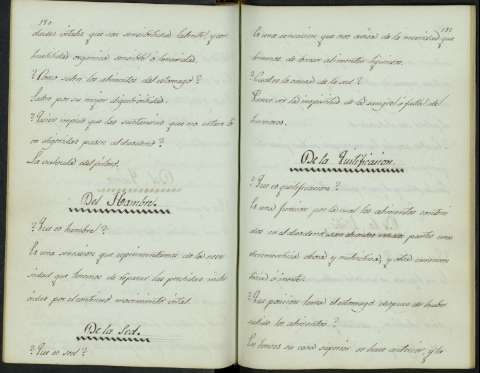 180
duces estable que son sensibilidad latente, y con-
tractilidad organica sensible ó tonicidad.
?Como salen los alimentos del estomago?
Salen por su mejor digestibilidad.
?Quien impide que las sustancias que no estan bi-
en digeridas pasen al duodeno?
La valvula del piloro.
Del Hambre.
?Que es hambre?
Es una sensacion que esperimentamos de la nece-
sidad que tenemos de reparar las perdidas indu-
cidas por el continuo movimiento vital.
De la Sed.
?Que es sed?
181
Es una sensacion que nos avisa de la necesidad que
tenemos de tomar alimentos liquidos.
?Cual es la causa de la sed?
Parece ser la impuridad de la sangre, ó falta de
humores.
De la Quilificacion.
?Que es quilificacion?
Es una funcion por la cual los alimentos conteni-
dos en el duodeno se parten una
y nutritiva, y otra escremen-
ticia ó inerte.
?Que posicion toma el estomago despues de haber
salido los alimentos?
Entonces su cara superior se hace anterior, y la